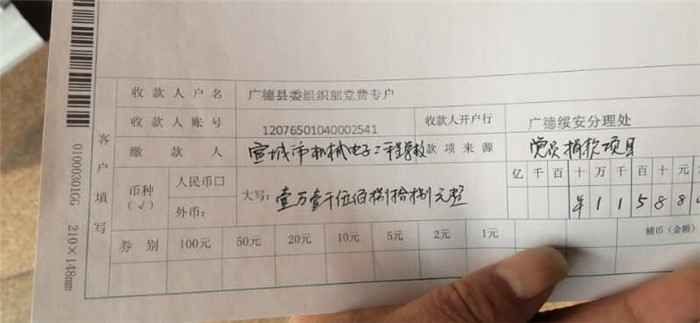 收款人户名 广德县委组织部党费专户
收款人账号 12076501040002541 收款人开户行 广德绥安分理处
缴款人 宣城市机械电子工程学校 款项来源 党员捐款项目
客户填写
币种(√) 人民币□ 大写:壹万壹仟伍佰捌拾捌元整 亿千百十万千百十元
外币: ¥11588
券别 100元 50元 20元 10元 5元 2元 1元 辅币(金额)
01000301GG 210×148mm